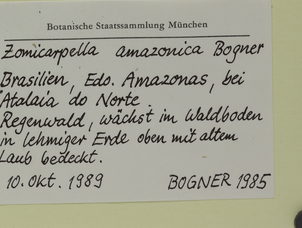 Botanische Staatssammlung München
Zomicarpella amazonica Bogner
Brasilien, Edo. Amazonas, bei
Atalaia do Norte
Regenwald, wächst im Waldboden
in lehmiger Erde oben mit altem
Laub bedeckt.
10. Okt. 1989 BOGNER 1985